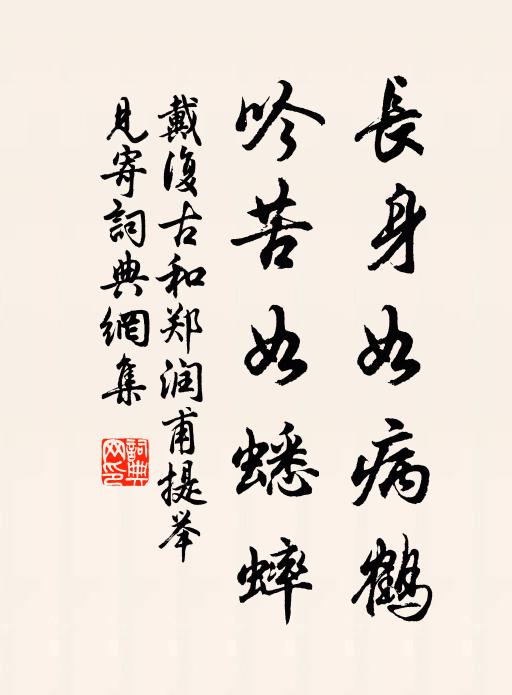 長身如病鶴
吟苦如蟋蟀
戴復古和郑润甫提举
見寄詞典網集
詞典
网印